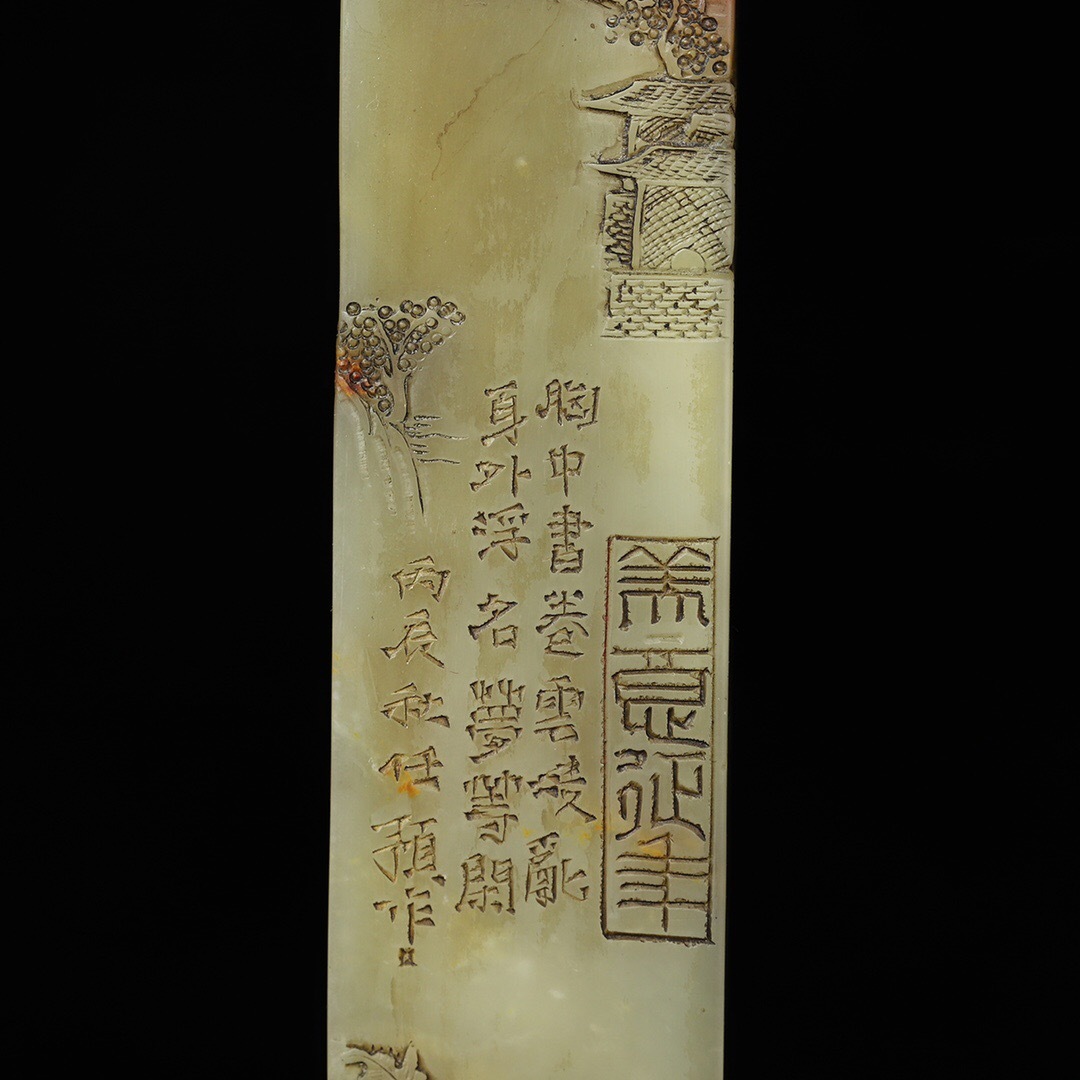 美意延年
胸中書卷雲凌亂
身外浮名夢等閑
丙辰秋任預作